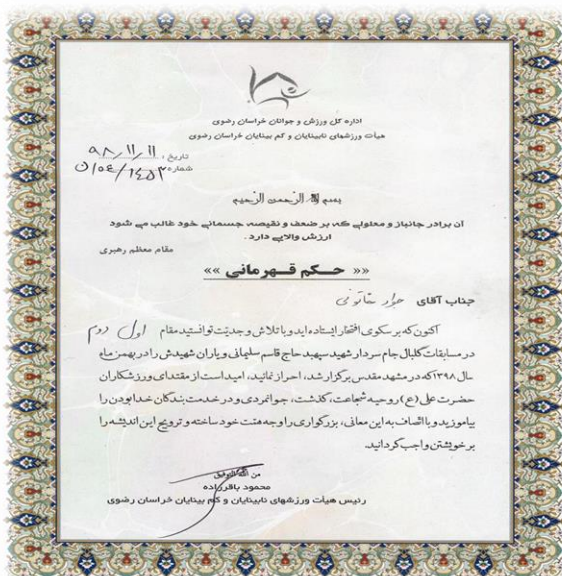 اداره کل ورزش و جوانان خراسان رضوی
هیأت ورزشهای نابینایان و کم بینایان خراسان رضوی
تاریخ : ۹۸/۱۱/۱۱
شماره
بسم الله الرحمن الرحیم
آن برادر جانباز و معلولی که بر ضعف و نقیصه جسمانی خود غالب می شود
ارزش والایی دارد .
مقام معظم رهبری
«« حکم قهرمانی »»
جناب آقای جواد
اکنون که بر سکوی افتخار ایستاده اید و با تلاش و جدیت توانستید مقام اول دوم
در مسابقات گلبال جام سردار شهید سپهبد حاج قاسم سلیمانی و یاران شهیدش را در بهمن ماه
سال ۱۳۹۸ که در مشهد مقدس برگزار شد، احراز نمائید، امید است از مقتدای ورزشکاران
حضرت علی (ع) روحیه شجاعت، گذشت، جوانمردی و در خدمت بندگان خدا بودن را
بیاموزید و با اتصاف به این معانی، بزرگواری را وجه همت خود ساخته و ترویج این اندیشه را
بر خویشتن واجب گردانید.
من الله التوفیق
محمود باقرزاده
رئیس هیأت ورزشهای نابینایان و کم بینایان خراسان رضوی